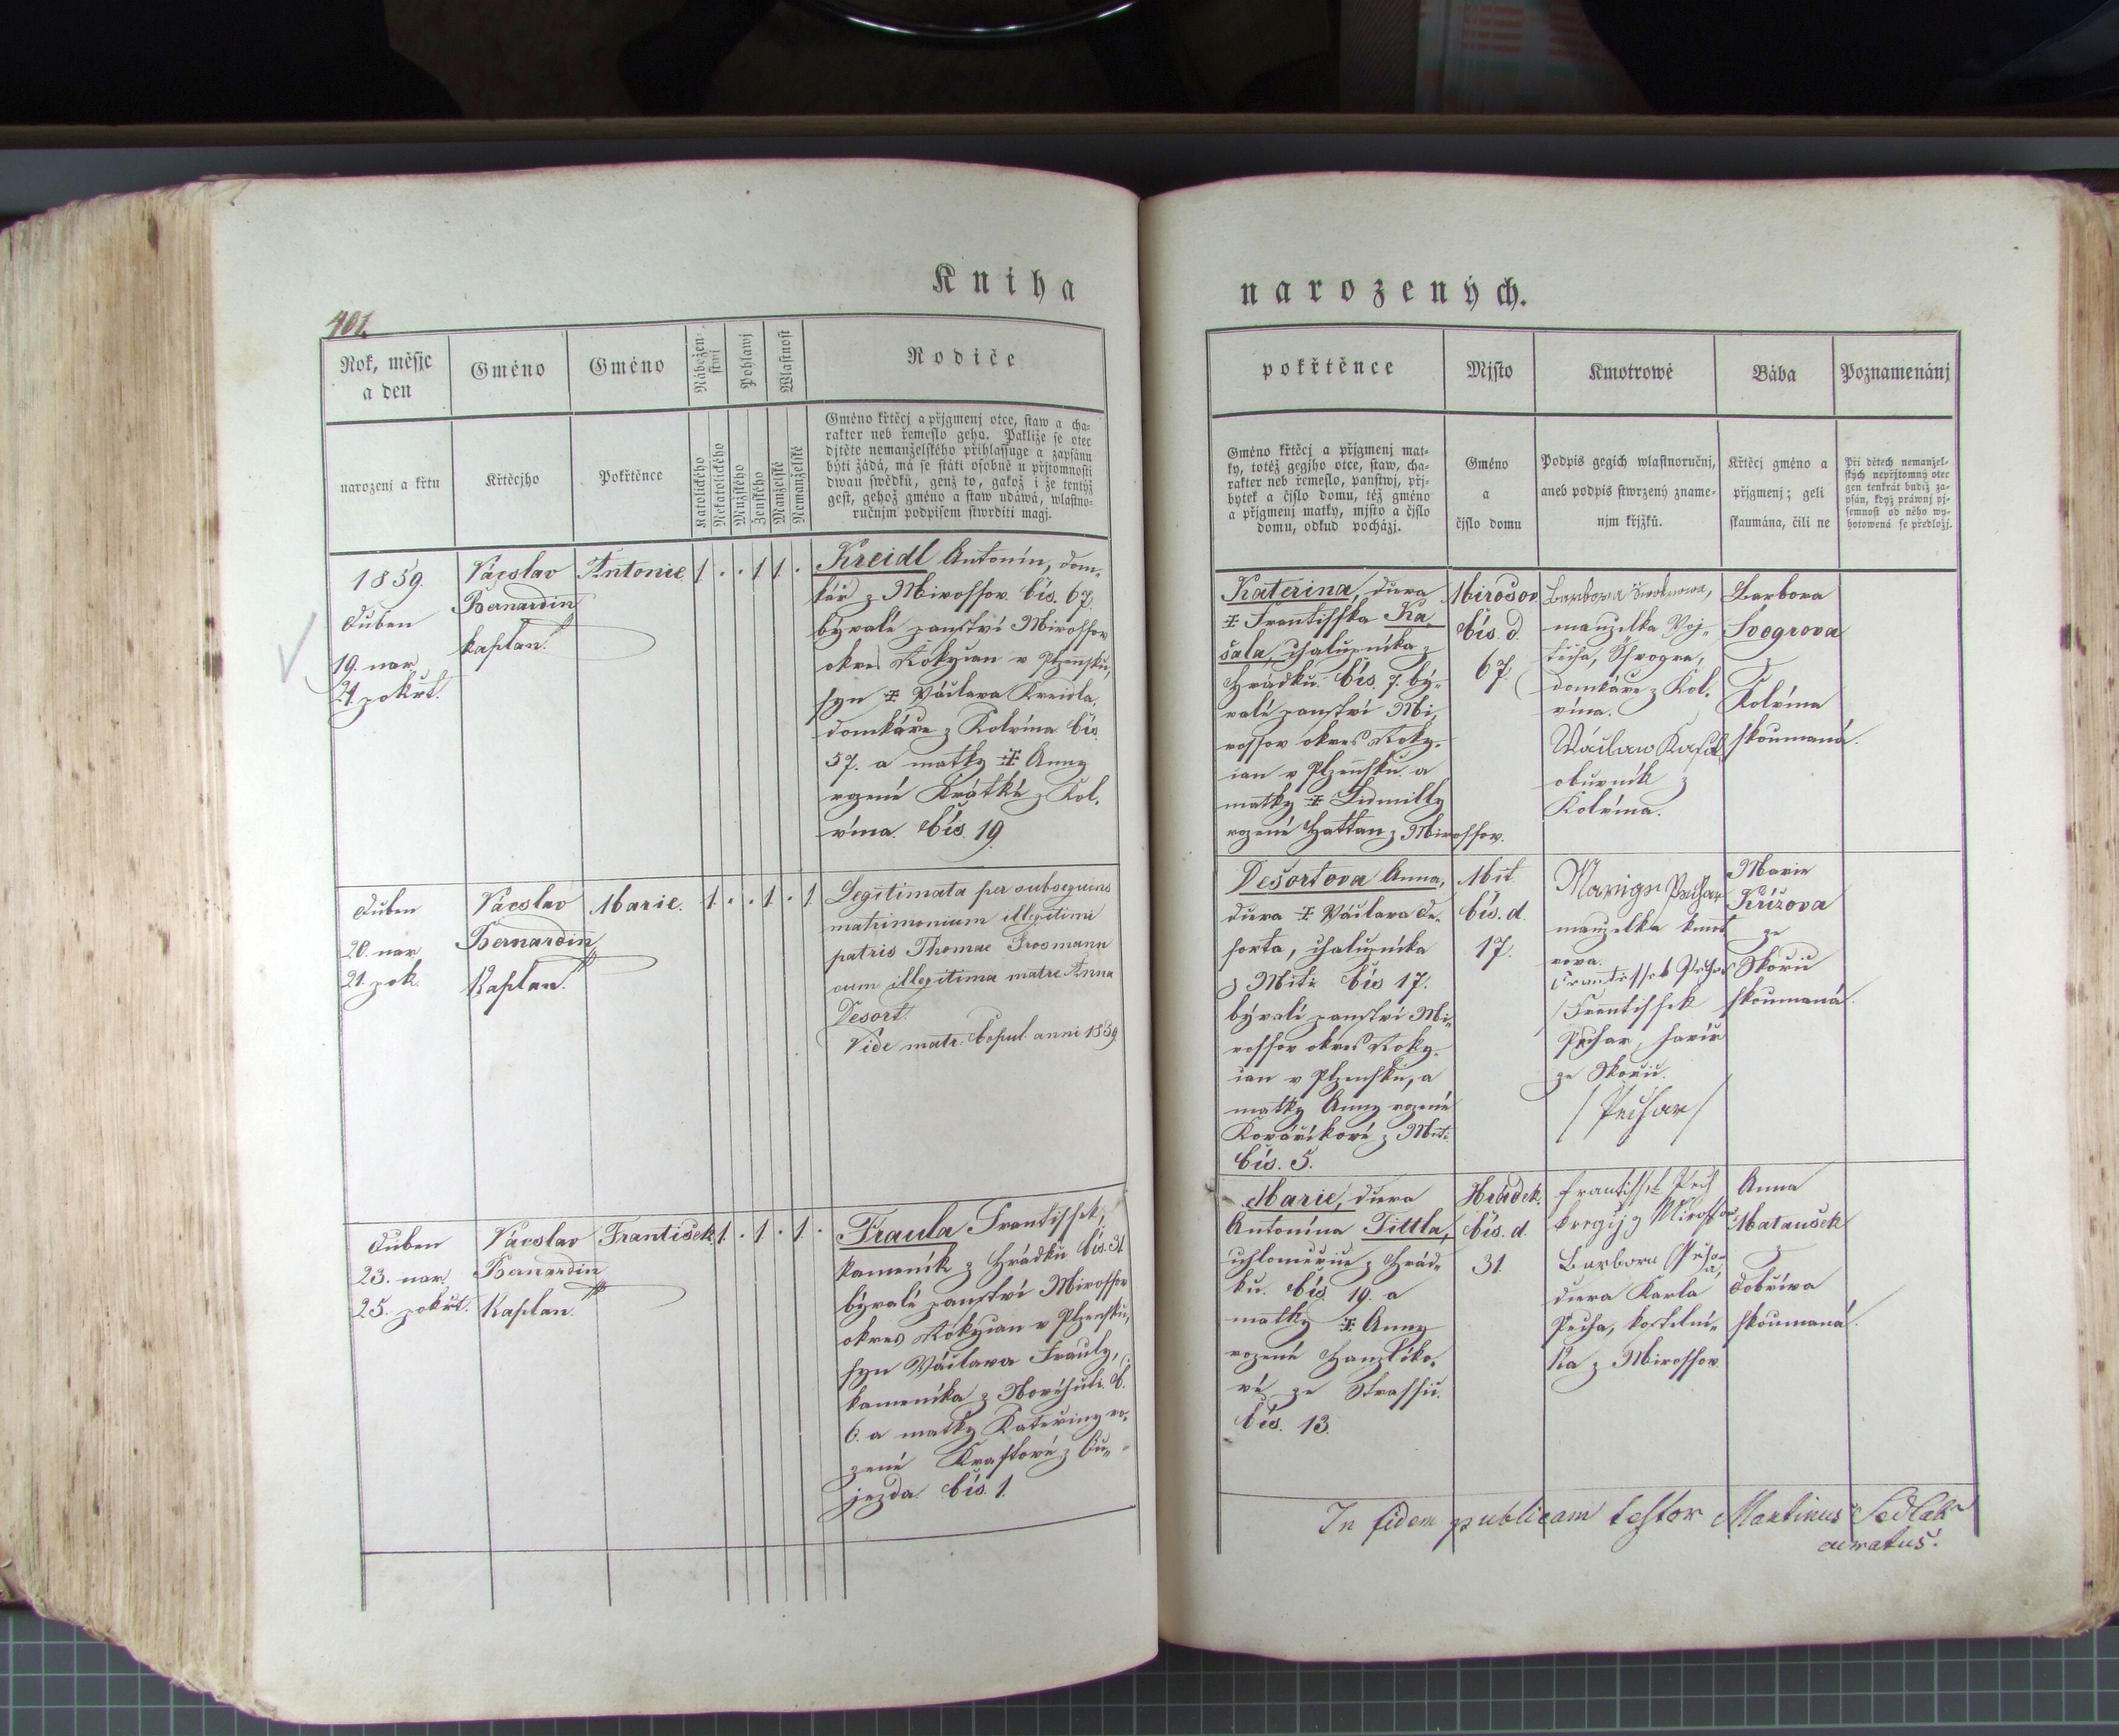 Kniha
narozených.
401.
Rok, měsjc
a den
Gméno
Gméno
Nábožen-
stwj
Pohlawj
Wlastnost
Rodiče
narozenj a křtu
Křtěcjho
Pokřtěnce
Katolického
Nekatolického
Mužského
Ženského
Manželské
Nemanželské
Gméno křtěcj a přjgmenj otce, staw a cha-
rakter neb řemeslo geho. Pakliže se otec
djtěte nemanželského přihlassuge a zapsánu
býti žádá, má se státi osobně u přjtomnosti
dwau swědků, genž to, gakož i že tentýž
gest, gehož gméno a staw udáwá, wlastno-
ručnjm podpisem stwrditi magj.
pokřtěnce
Mjsto
Kmotrowé
Bába
Poznamenánj
Gméno křtěcj a přjgmenj mat-
ky, totéž gegjho otce, staw, cha-
rakter neb řemeslo, panstwj, přj-
bytek a čjslo domu, též gméno
a přjgmenj matky, mjsto a čjslo
domu, odkud pocházj.
Gméno
a
čjslo domu
Podpis gegich wlastnoručnj,
aneb podpis stwrzený zname-
njm křjžků.
Křtěcj gméno a
přjgmenj; geli
skaumána, čili ne
Při dětech nemanžel-
ských nepřjtomný otec
gen tenkrát budiž za-
psán, když práwnj pj-
semnost od něho wy-
hotowená se předložj.
1859.
Duben
19. nar.
21. pokřt.
Vácslav
Bernardin
kaplan.
Antonie
1 . . 1 1 .
Kreidl Antonín, dom-
kář z Mirossov čís. 67.
bývalé panství Mirossov
okres Rokycan v Plzeňsku,
syn Václava Kreidla,
domkáře z Kolvína čís.
57. a matky Anny
rozené Krátké z Kol-
vína čís. 19.
Kateřina, dcera
Frantisska Ka-
šala, chalupníka z
Hrádku čís. 7. bý-
valé panství Mi-
rossov okres Roky-
can v Plzeňsku a
matky Lidmilly
rozené Hattan z Mirossov.
Mirosov
čís. d.
67.
Barbora
manželka Voj-
těcha,
domkáře z Kol-
vína.
Wáclaw
obuvník z
Kolvína.
Barbora
Švogrova
z
Kolvína
skoumaná.
Duben
20. nar.
21. pok.
Vácslav
Bernardin
Kaplan.
Marie.
1 . . 1 . 1
Legitimata per subsequens
matrimonium illegitimi
patris Thomae Grosmann
cum illegitima matre Anna
Desort.
Vide matr. Copul. anni 1859.
Desortova Anna,
dcera Václava De-
sorta, chalupníka
z Mití čís 17.
bývalé panství Mi-
rossov okres Roky-
can v Plzeňsku, a
matky Anny rozené
Kovaříkové z Mití
čís. 5.
Mit.
čís. d.
17.
Pechar
manželka
Frantissek Pechar
/Frantissek
Pechar, havíř
ze Skořic.
/Pechar/
Marie
Křížova
ze
Skořic
skoumaná.
Duben
23. nar.
25. pokřt.
Vácslav
Bernardin
Kaplan.
František
1 . 1 . 1 .
Fraula Frantissek,
kameník z Hrádku čís. 31
bývalé panství Mirossov
okres Rokycan v Plzeňsku,
syn Václava Frauly,
kameníka z Novéhuti č.
6. a matky Kateřiny ro-
zené Kraftové z Ou-
jezda čís. 1.
Marie, dcera
Antonína Tittla,
z Hrád-
ku čís. 19. a
matky Anny
rozené Hanzlíko-
vé ze Strassic
čís. 13.
Hrádek.
čís. d.
31.
Frantissek Pech
kregčj z Mirossov
Barbora
dcera Karla
Pecha, kostelní-
ka z Mirossov.
Anna
Matausek
z
Dobříva
skoumaná.
In fidem publicam testor Martinus Sedlak
curatus.